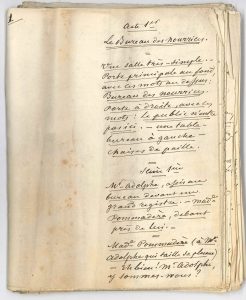 1
Acte 1er
Le Bureau des nourrices.
Une salle très-simple.
Porte principale au fond,
avec ces mots au dessus:
Bureau des nourrices
Porte à droite, avec ces
mots: le public n'entre
pas ici. — une table
bureau à gauche
chaises de paille.
Scène 1re
Mr Adolphe, assis au
bureau devant un
grand registre — mad.
Pommadère, debout
près de lui. —
Made Pommadère (à Mr
Adolphe qui taille sa plume)
— Eh bien! Mr Adolphe,
y sommes-nous?